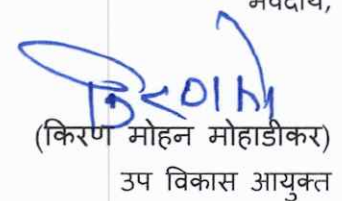 भवदीय,
(किरण मोहन मोहाडीकर)
उप विकास आयुक्त